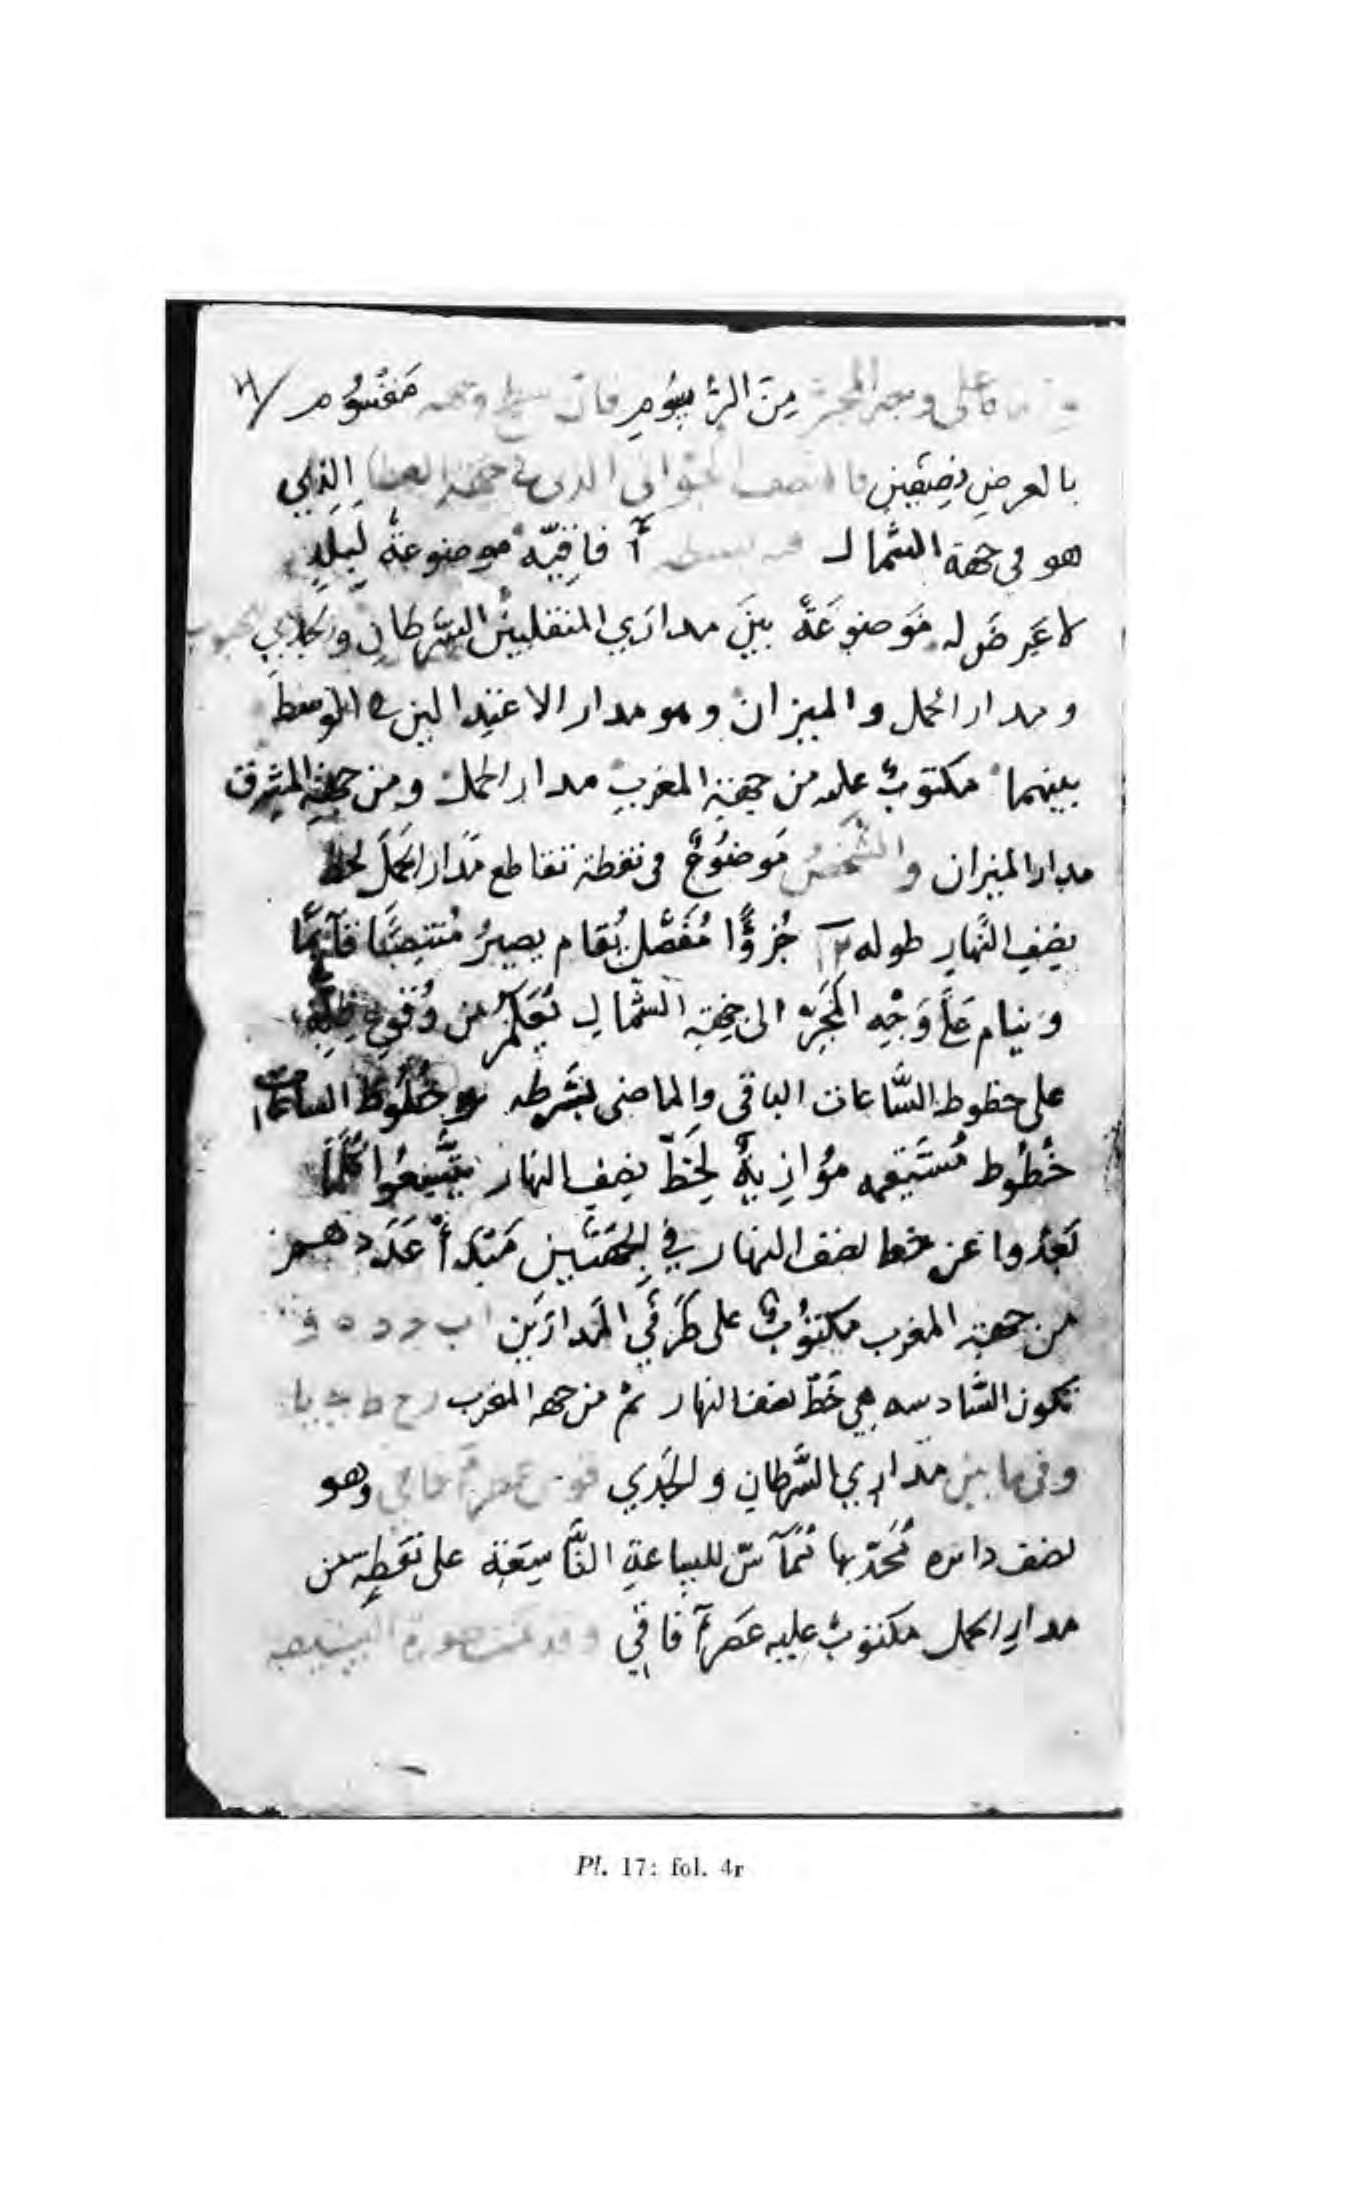 على وجه المجرّة مِنَ الرُّسُومِ فانّ سطح وجهه مَقْسُوم
بالعرضِ نِصفَين فالنصف الذى في جهة الذي
هو في جهة الشمال بسيطه آفاقيّة موضوعة لِبَلَدٍ
لا عَرضَ له مَوضوعَةٌ بينَ مدارَي المنقلبين السَّرطانِ والجدي
ومدار الحمل والميزان وهو مدار الاعتدالين في المتوسط
بينهما مكتوبٌ عليه من جهةِ المغربِ مدار الحمل ومن جهةِ المشرق
مدار الميزان والشَّخصُ مَوضُوعٌ في نقطة تقاطع مَدَار الحَمَل لخط
نِصفِ النَّهارِ طوله جُزؤًا مُفَصَّل يُقام يصيرُ مُنتصِبًا قآئِمًا
وينام عَلَى وَجْهِ المَجَرّة الى جِهةِ الشّمالِ يُعلَمُ من وُقوعِ ظِلِّهِ
على خطوط السَّاعات الباقى والماضى بشَرطه وخُطُوط الساعات
خُطُوط مُستَقيمه مُوَازيةٌ لِخَطّ نِصفِ النهار يتَّسِعُوا كُلَّمَا
بَعُدوا عن خط نصف النهار في الجِهَتَين مَبْدَأ عَدَدهم من
من جهة المغرب مكتوُبٌ على طَرَفَي المَدارَين ا ب ج د ه و
تكون السَّادسه هي خَطّ نصف النهار ثمّ من جهه المغرب ز ح ط ي يا
وفى ما بين مَدارَي السَّرطانِ والجَدي قوس عصر آفاقي وهو
نصف دائره مُحَدّبها تُمَآسّ للسّاعةِ التّاسِعَة على نقطة من
مدارِ الحمل مكتوبٌ عليه عَصر آفاقي وقد تمت صورة البسيطه
Pl. 17: fol. 4r